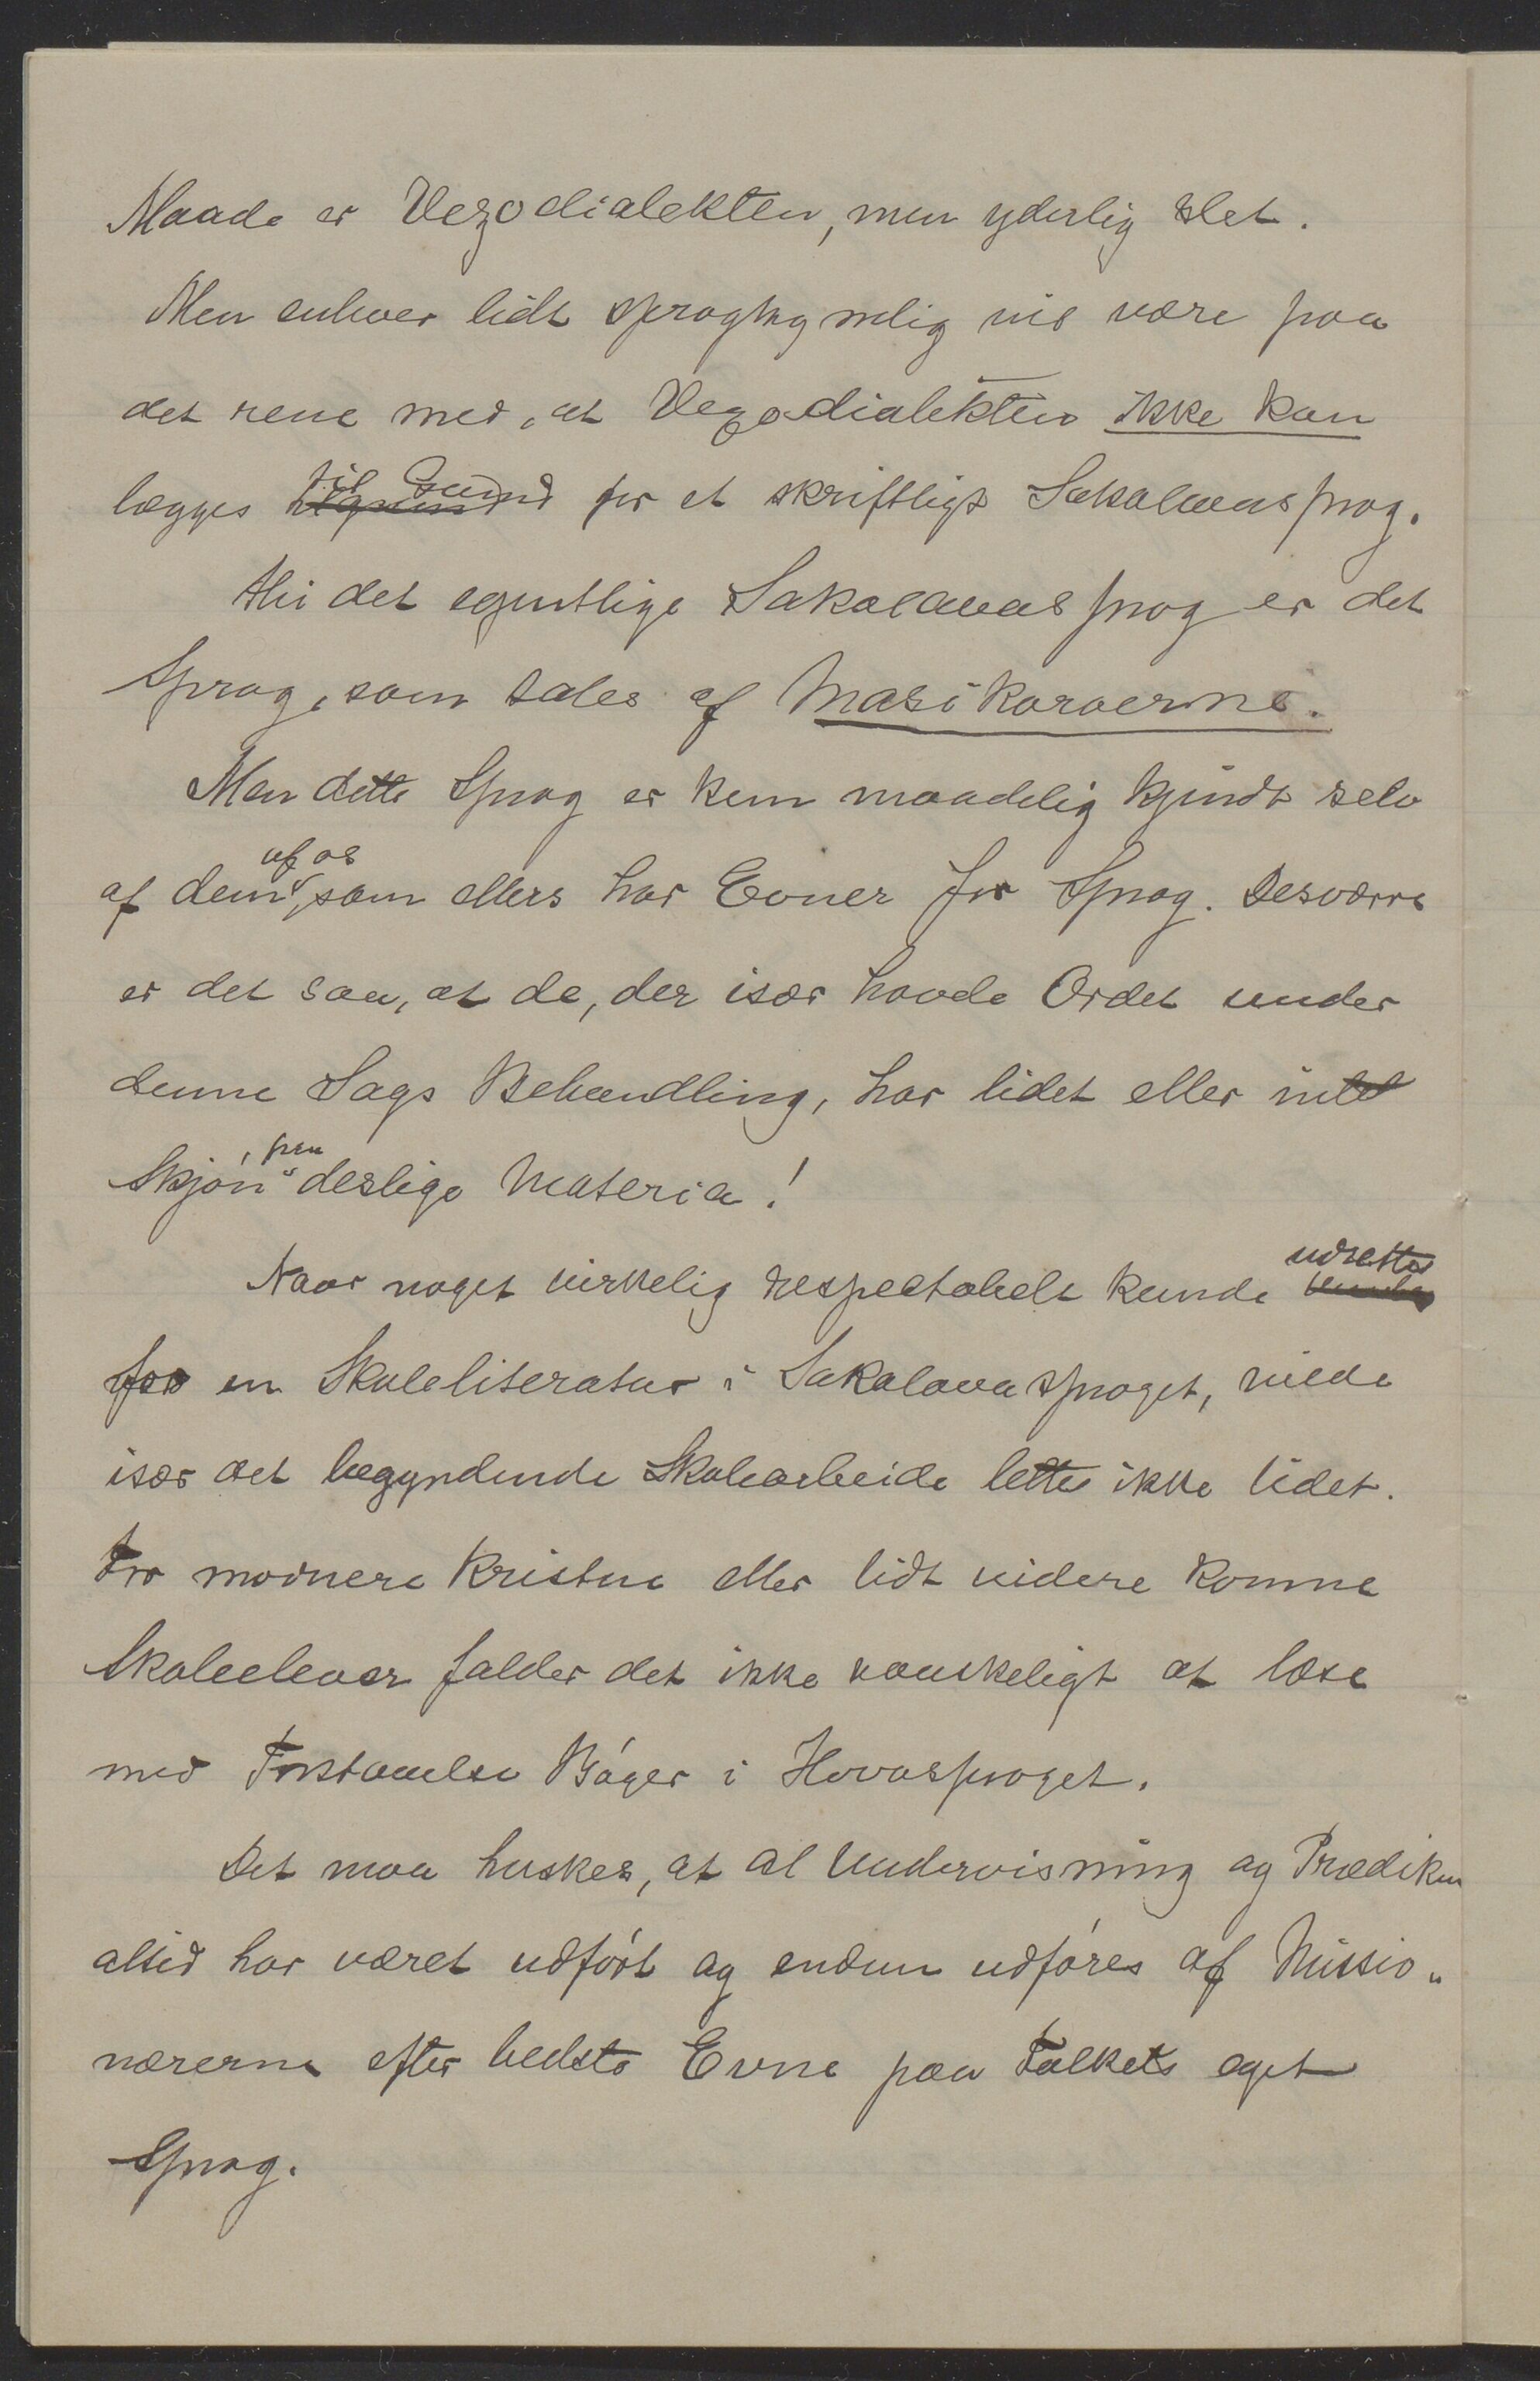 Maade er Vezodialekten, men yderlig slet.
Men enhver lidt sprogkyndig vil være paa
det rene med, at Vezodialekten ikke kan
lægges til Grund for et skriftligt Sakalavasprog.
Thi det egentlige Sakalavasprog er det
Sprog, som tales af Masikoroerne.
Men dette Sprog er kun maadelig kjendt selv
af dem af os, som ellers har Evner for Sprog. Desværre
er det saa, at de, der især havde Ordet under
denne Sags Behandling, har lidet eller intet
Skjøn paa deslige Materia!
Naar noget virkelig respectabelt kunde udrettes
for en Skoleliteratur i Sakalavasproget, vilde
især det begyndende Skolearbeide lettes ikke lidet.
For modnere Kristne eller lidt videre komne
Skoleelever falder det ikke vanskeligt at læse
med Forstaaelse Bøger i Hovasproget.
Det maa huskes, at al Undervisning og Prædiken
altid har været udført og endnu udføres af Missio„
nærerne efter bedste Evne paa Folkets eget
Sprog.